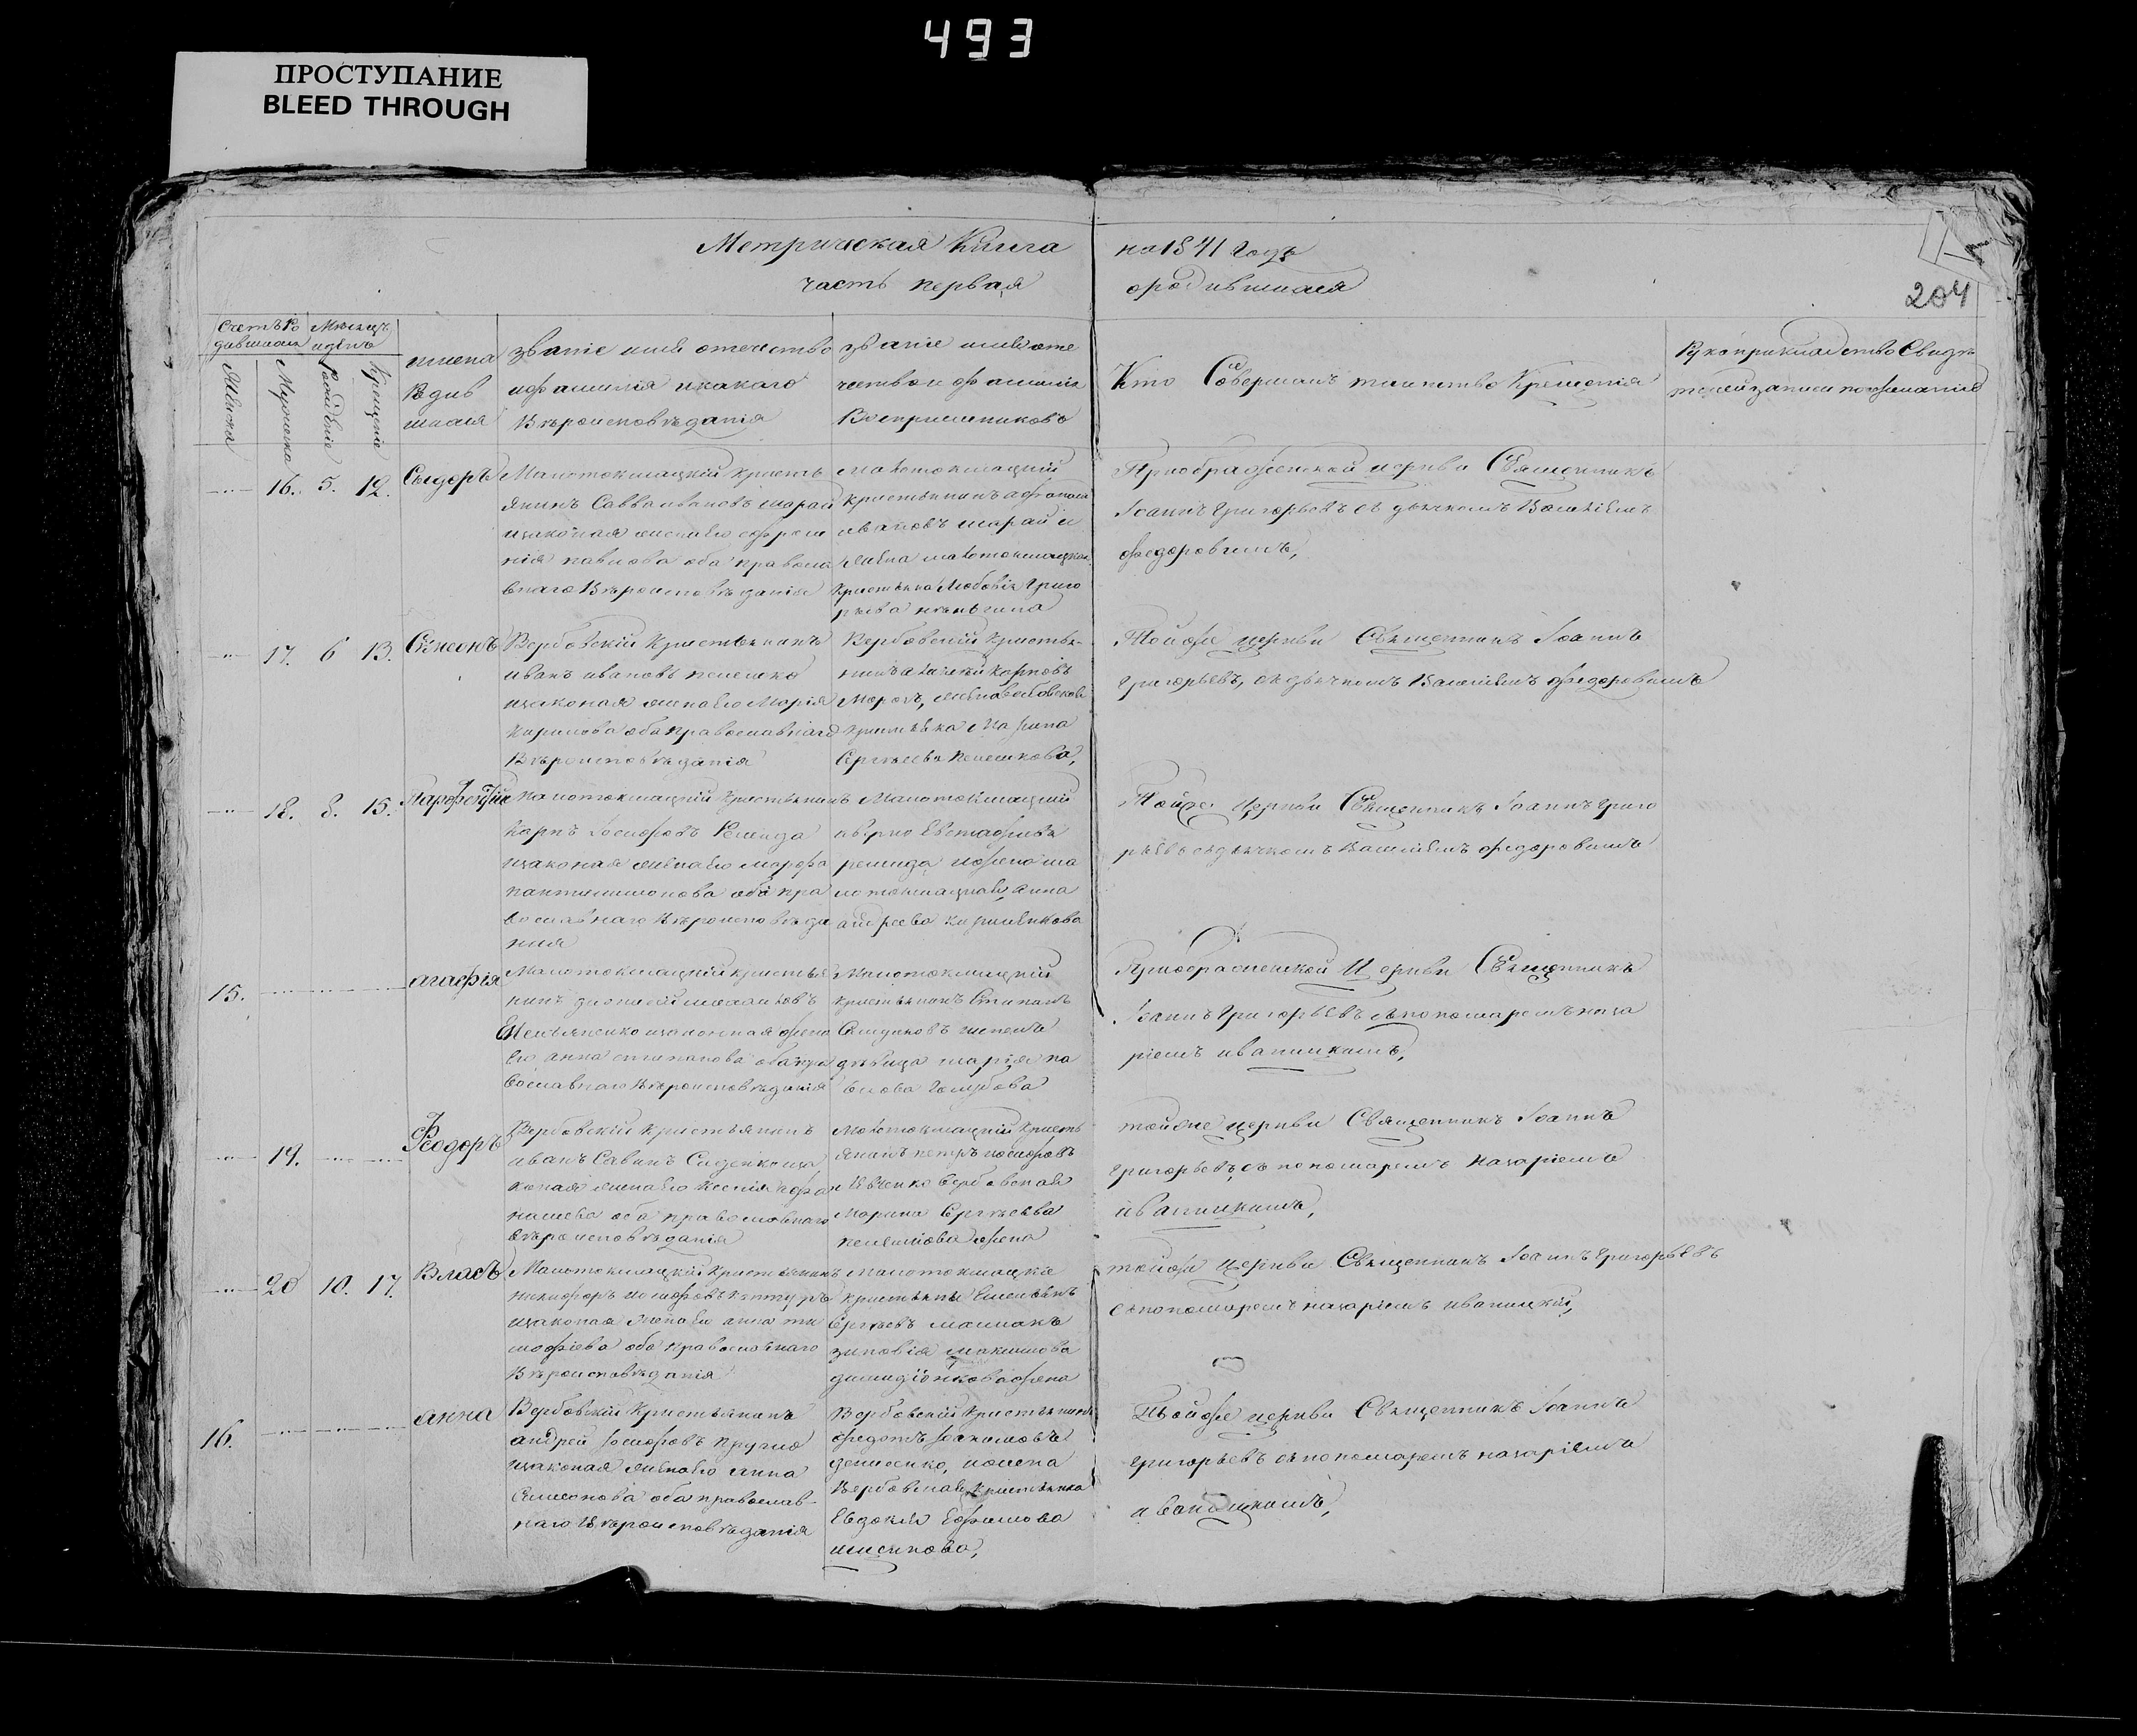 493
ПРОСТУПАНИЕ
BLEED THROUGH
Метрическая Книга на 1841 Годъ
часть первая о родившихся
204
Счетъ Ро Мѣсяцъ
дившихся и день
Женска
Мужеска
Рожденіе
Крещеніе
имена
Родив
шихся
званіе имя отечество
и фамилія и какого
Вѣроисповѣданія
званіе имя оте
чество и фамилія
Воспріемниковъ
Кто Совершалъ таинство Крещенія
Рукоприкладство Свидѣ
телей записи по желанію
16. 5. 12.
Сыдоръ
Малотокмацкій кресть
янинъ Савва Ивановъ Шарай
и законая жена его Ефроси
нія Павлова оба правосла
внаго Вѣроисповѣданія
Малотокмацкій
крестьянинъ Афанасій
Ивановъ Шарай и
жена малотокмацкая
крестьянка Любовія Григо
рьева
Приображенской церкви Священникъ
Іоаннъ Григорьевъ съ дьячкомъ Василіемъ
Федоровимъ,
17. 6 13.
Сѵмеонъ
Вербовскій Крестьянинъ
Иванъ Ивановъ Келешко
и законая жена его Марія
Кирилова оба православнаго
Вѣроисповѣданія
Вербовскій Крестья-
нинъ Алексѣй Карповъ
Морозъ, жена вербовскова
крестьянка Марина
Сергѣева Келешкова,
Той же церкви Священникъ Іоаннъ
Григорьевъ, съ дьячкомъ Василіемъ Федоровимъ
18. 8. 15.
Парфентій
Малотокмацкій Крестьянинъ
Карпъ Іосифовъ Реминда
и законая жена его Марфа
Пантилимонова оба пра
вославнаго Вѣроисповѣда
нія
Малотокмацкій
Евстафіевъ
и жена ма
лотокмацкая, Анна
Андреева
Той же Церкви Священникъ Іоаннъ Григо
рьевъ съ дьячкомъ Василіемъ Федоровимъ
15.
Агафія
Малотокмацкій крестья
нинъ
Емельяненко и законная жена
его Анна Степанова оба пра
вославнаго Вѣроисповѣданія
Малотокмацкій
крестьянинъ Стипанъ
дѣвица Марія Па
влова Голубова
Приображенской Церкви Священникъ
Іоаннъ Григорьевъ съ пономаремъ Наза
ріемъ Иваницкимъ,
19.
Феодоръ
Вербовскій Крестьянинъ
Иванъ Савинъ Сиденко и за
коная жена его Ксенія Афа
насіева оба православнаго
вѣроисповѣданія
Малотокмацкій Кресть
янинъ Петръ Іосифовъ
Ивченко вербовская
Марина Сергѣева
Келешкова жена
той же церкви Священникъ Іоаннъ
Григорьевъ, съ пономаремъ Назаріемъ
Иваницкимъ,
20 10. 17.
Власъ
Малотокмацкій Крестьянинъ
Никифоръ Іосифовъ Кантуръ
и законая жена его Анна Ти
мофіева оба православнаго
Вѣроисповѣданія
Малотокмацкіе
крестьяны Емельянъ
Сергѣевъ
Зиновія Максимова
жена
той же Церкви Священникъ Іоаннъ Григорьевъ
съ пономаремъ Назаріемъ Иваницкій,
16.
Анна
Вербовскій Крестьянинъ
Андрей Іосифовъ Кругло
и законая жена его Анна
Симеонова оба православ-
наго Вѣроисповѣданія
Вербовскій Крестьянинъ
Федотъ Іоакимовъ
Денисенко, и жена
Вербовская Крестьянка
Евдокія Ефимова
Той же церкви Священникъ Іоаннъ
Григорьевъ съ пономаремъ Назаріемъ
Иваницкимъ,